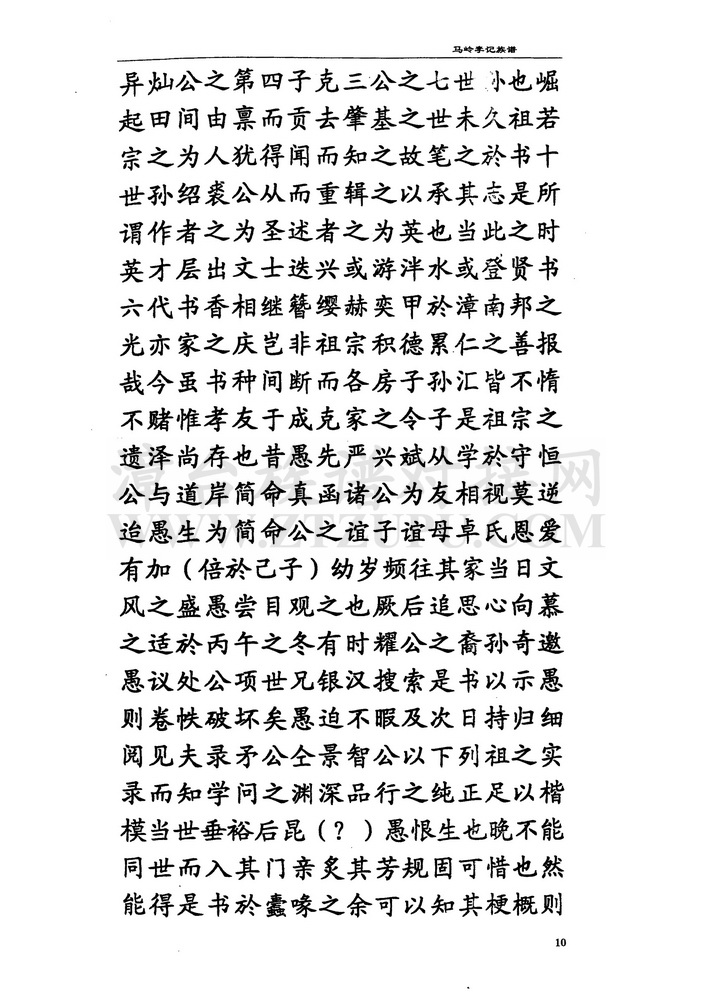 马岭李记族谱
异灿公之第四子克三公之七世孙也崛
起田间由禀而贡去肇基之世未久祖若
宗之为人犹得闻而知之故笔之於书十
世孙绍裘公从而重辑之以承其志是所
谓作者之为圣述者之为英也当此之时
英才层出文士迭兴或游泮水或登贤书
六代书香相继簪缨赫奕甲於漳南邦之
光亦家之庆岂非祖宗积德累仁之善报
哉今虽书种间断而各房子孙汇皆不惰
不赌惟孝友于成克家之令子是祖宗之
遗泽尚存也昔愚先严兴斌从学於守恒
公与道岸简命真函诸公为友相视莫逆
迨愚生为简命公之谊子谊母卓氏恩爱
有加（倍於己子）幼岁频往其家当日文
风之盛愚尝目观之也厥后追思心向慕
之适於丙午之冬有时耀公之裔孙奇邀
愚议处公项世兄银汉搜索是书以示愚
则卷帙破坏矣愚迫不暇及次日持归细
阅见夫录矛公仝景智公以下列祖之实
录而知学问之渊深品行之纯正足以楷
模当世垂裕后昆（？）愚恨生也晚不能
同世而入其门亲炙其芳规固可惜也然
能得是书於蠹喙之余可以知其梗概则
漳台族谱对接网
WWW.ZTZUPU.COM
10